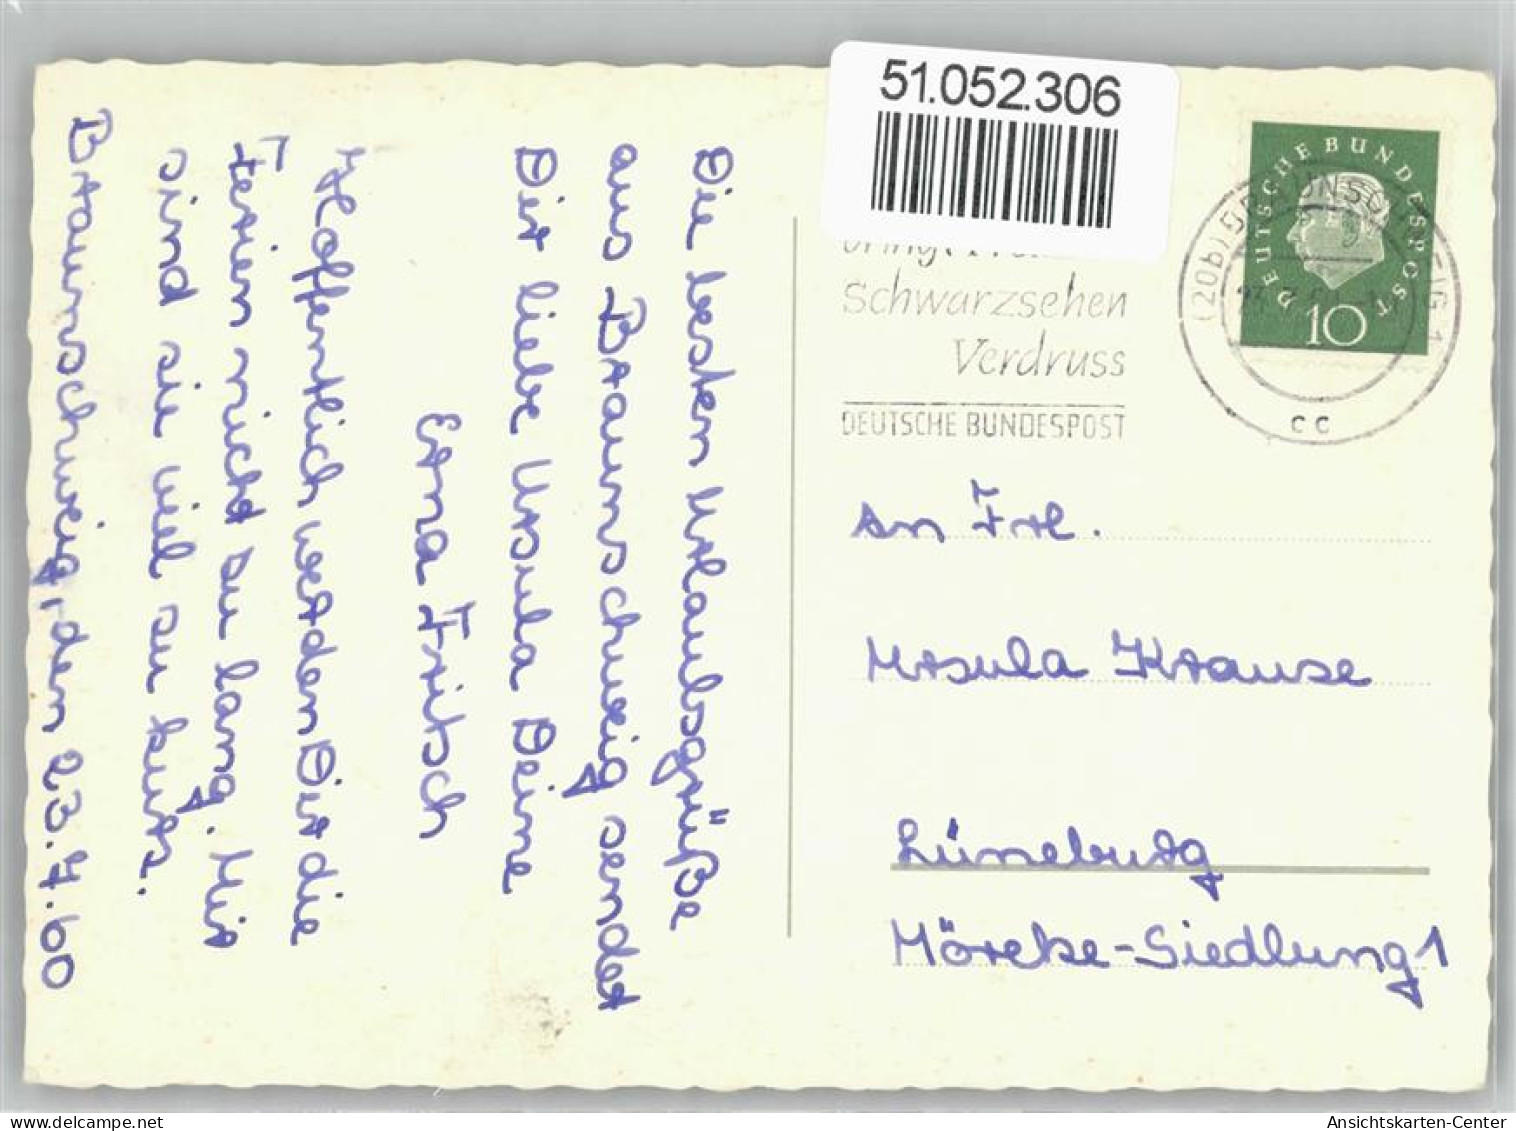 51.052.306
DEUTSCHE BUNDESPOST
10
Schwarzsehen
Verdruss
DEUTSCHE BUNDESPOST
(20b) BRAUNSCHWEIG 1
cc
An Frl.
Ursula Krause
Lüneburg
Möreke-Siedlung 1
Die besten Urlaubsgrüße
aus Braunschweig sendet
Dir liebe Ursula Deine
Erna Fritsch
Hoffentlich werden Dir die
Ferien nicht zu lang. Mir
sind sie viel zu kurz.
Braunschweig, den 23.7.60
www.delcampe.net
Ansichtskarten-Center